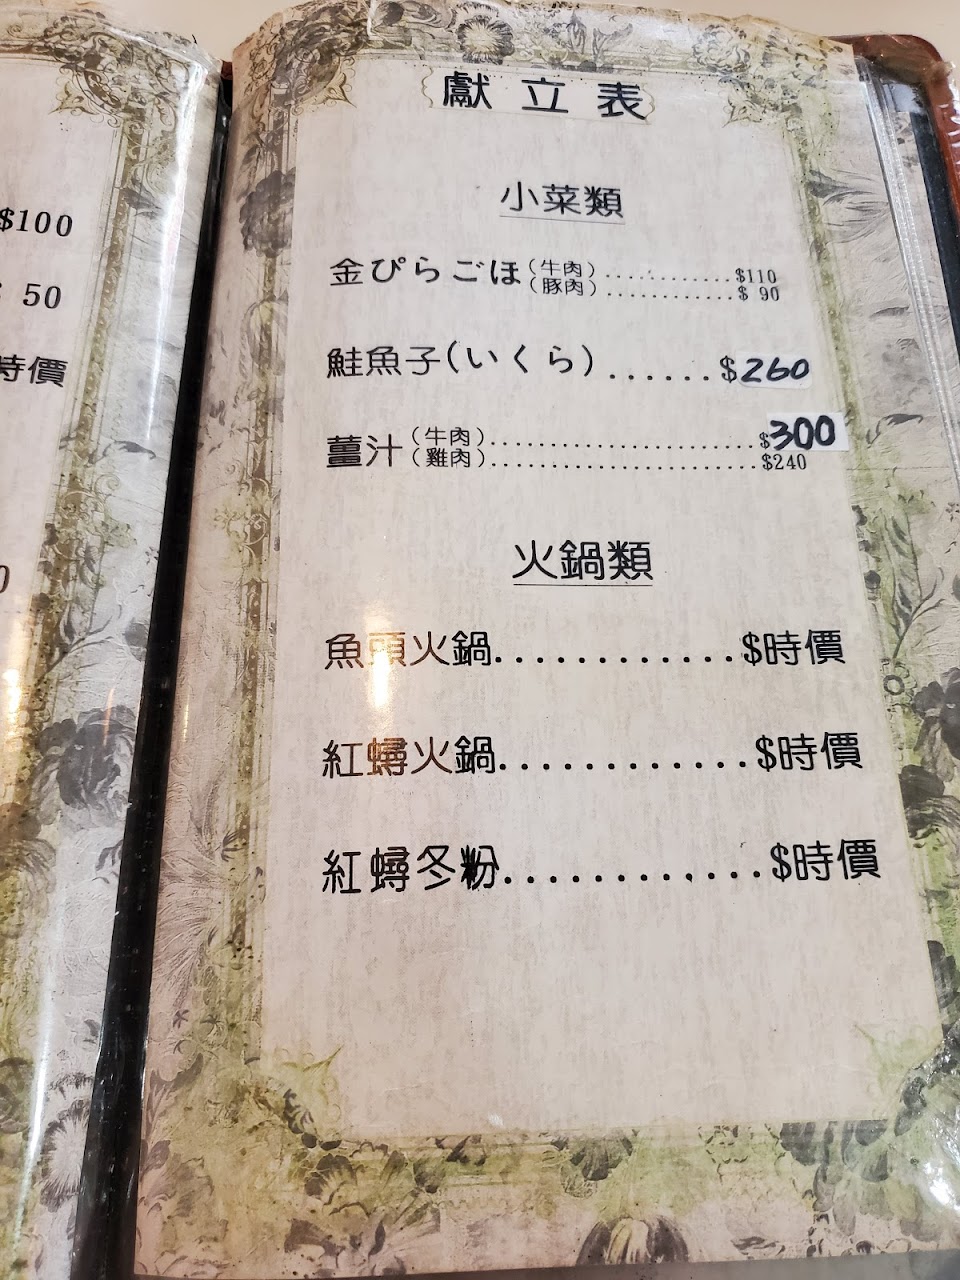 $100
50
時價
0
獻立表
小菜類
金ぴらごほ(牛肉)............$110
(豚肉)............$ 90
鮭魚子(いくら).......$260
薑汁(牛肉)........................$300
(雞肉)........................$240
火鍋類
魚頭火鍋.............$時價
紅蟳火鍋.............$時價
紅蟳冬粉.............$時價